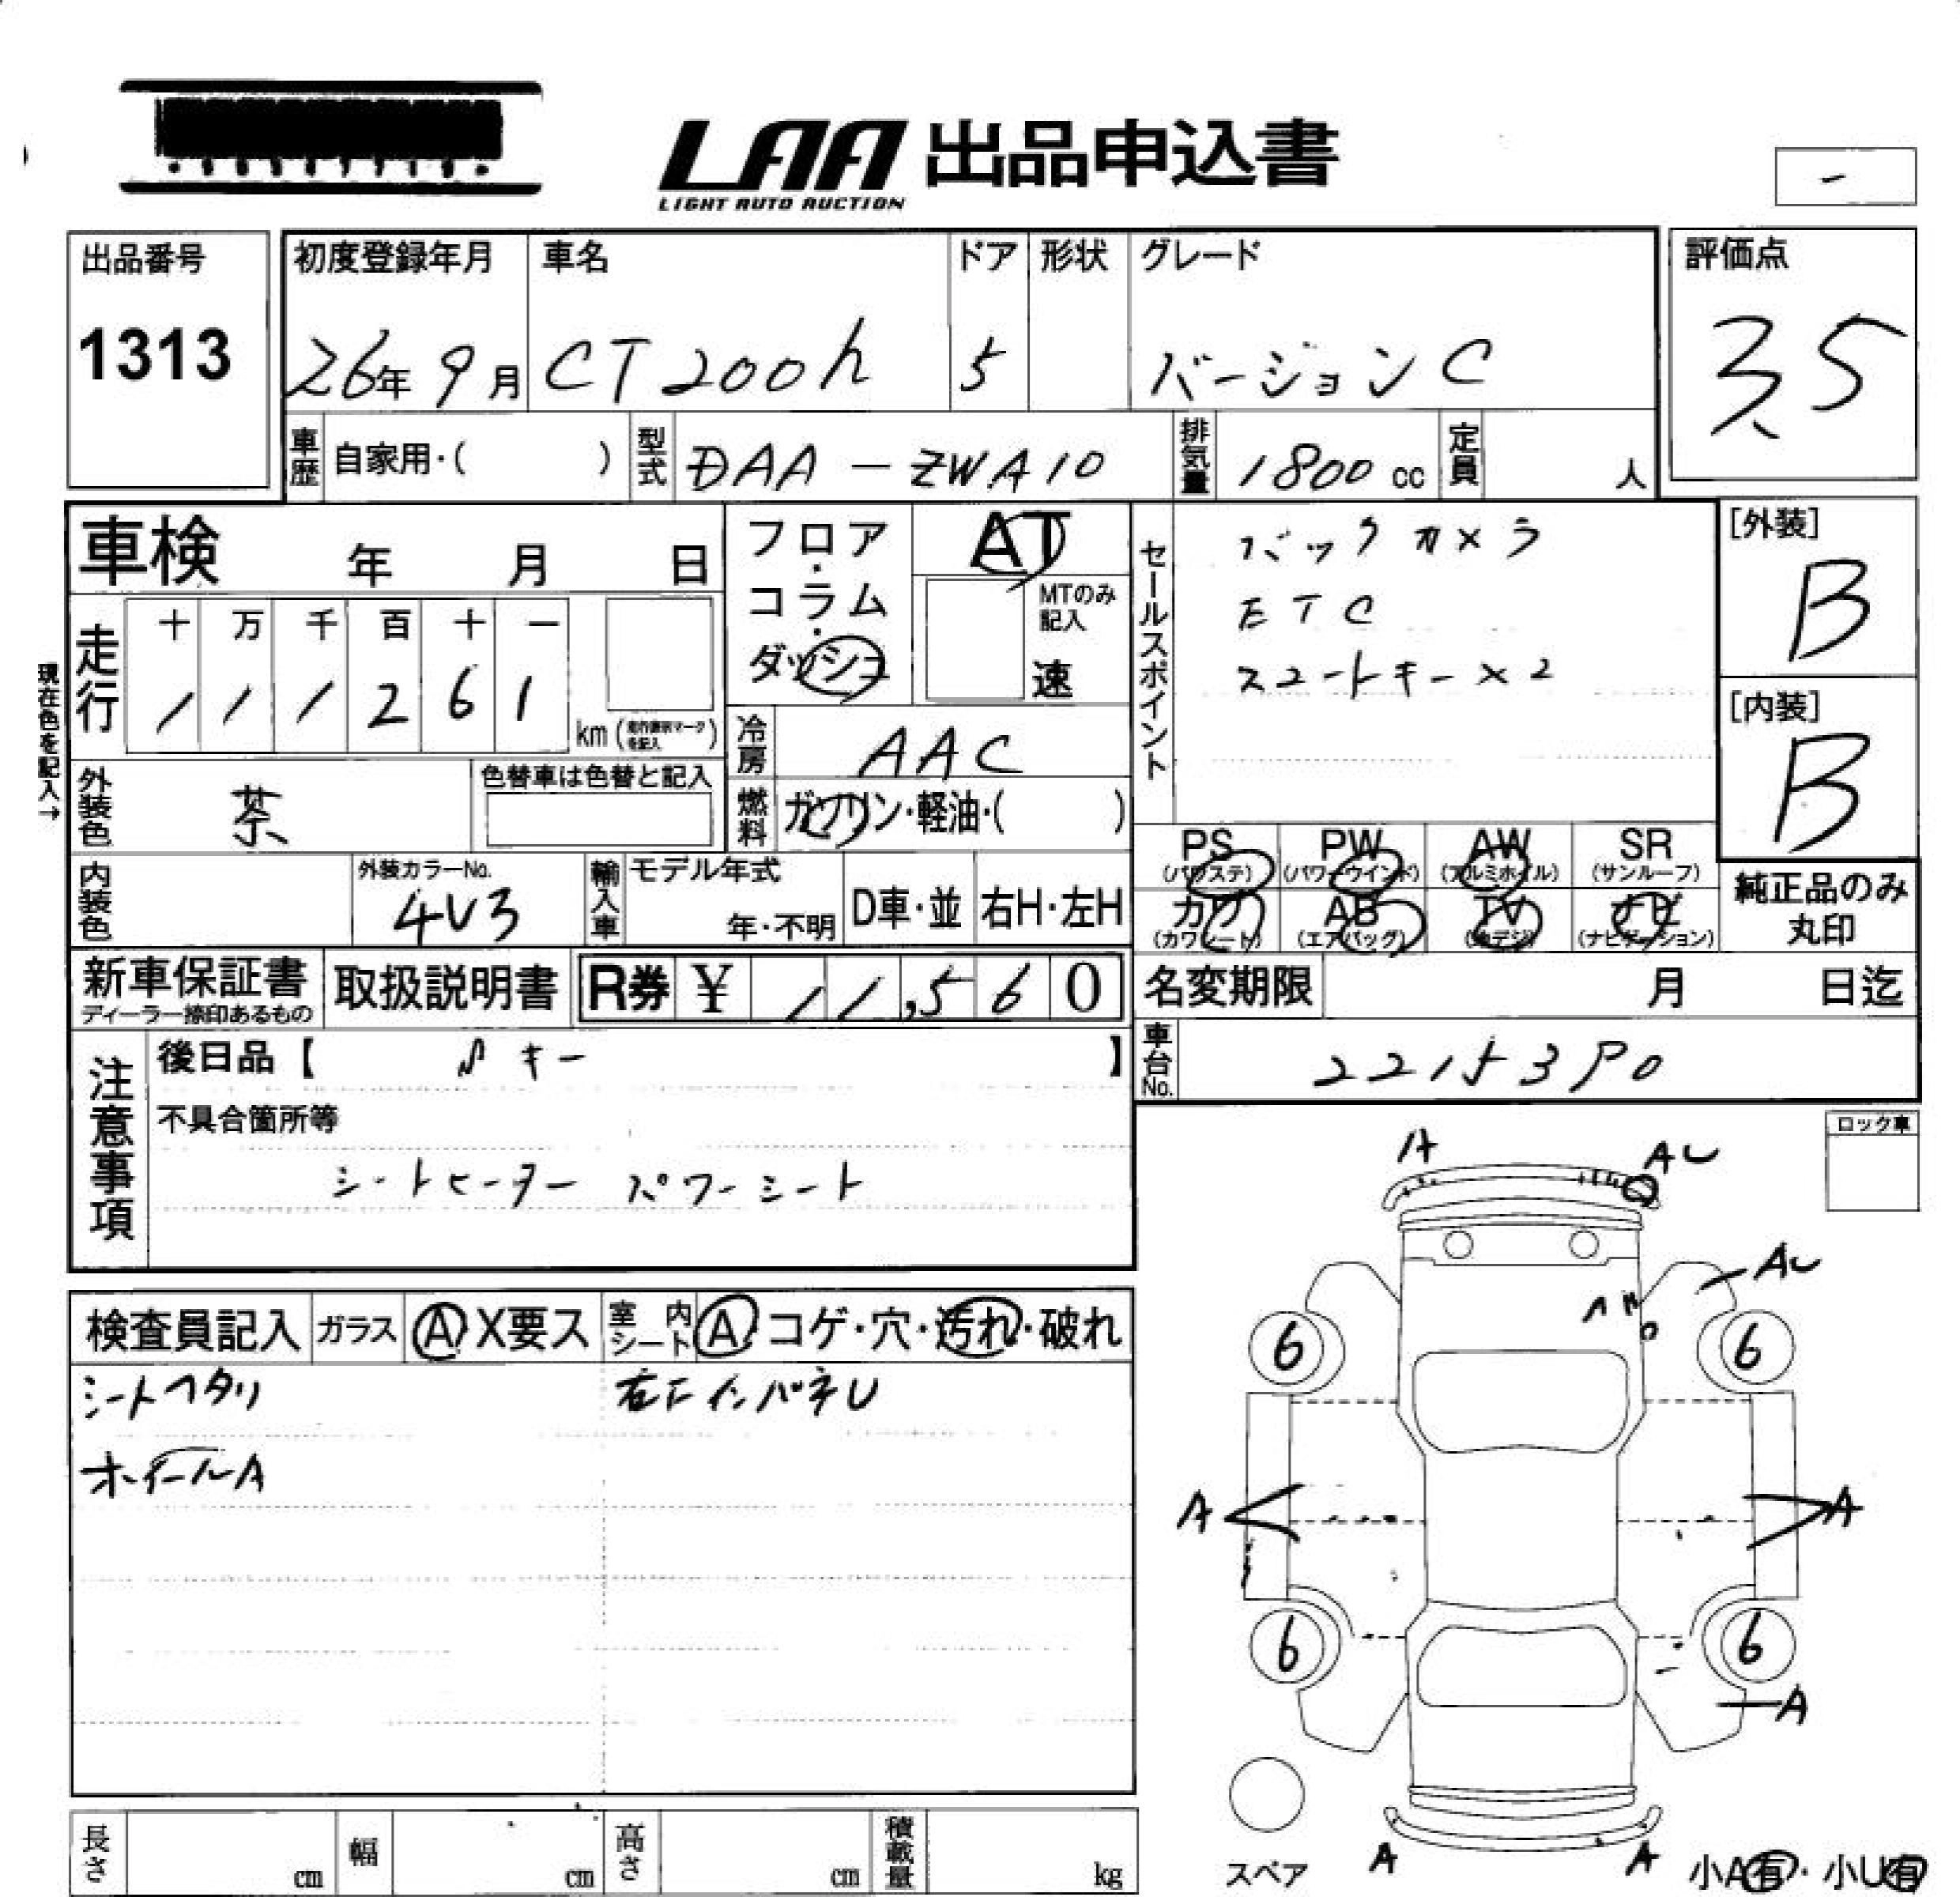 LAA 出品申込書
LIGHT AUTO AUCTION
-
出品番号
1313
初度登録年月
26年 9月
車名
CT200h
ドア
5
形状
グレード
バージョンC
評価点
3.5
車歴
自家用・( )
型式
DAA-ZWA10
排気量
1800 cc
定員
人
車検 年 月 日
フロア・コラム・ダッシュ
AT
MTのみ記入
速
セールスポイント
バックカメラ
ETC
スマートキー×2
[外装]
B
[内装]
B
現在色を記入→
走行
十 万 千 百 十 一
1 1 1 2 6 1
km
冷房
AAC
外装色
茶
色替車は色替と記入
燃料
ガソリン・軽油・( )
PS
(パワステ)
PW
(パワーウインド)
AW
(アルミホイル)
SR
(サンルーフ)
カワ
(カワシート)
AB
(エアバッグ)
TV
(地デジ)
ナビ
(ナビゲーション)
純正品のみ
丸印
内装色
外装カラーNo.
4V3
輸入車
モデル年式
年・不明
D車・並
右H・左H
新車保証書
ディーラー捺印あるもの
取扱説明書
R券 ¥ 11,560
名変期限 月 日迄
車台No.
注意事項
後日品【 キー 】
不具合箇所等
シートヒーター パワーシート
ロック車
検査員記入
ガラス
A X要ス
室内シート
A コゲ・穴・汚れ・破れ
シートヘタリ
インパネU
ホイールA
A
AU
AU
6
6
A
A
6
6
A
スペア
A
A
小A有・小U有
長さ
cm
幅
cm
高さ
cm
積載量
kg